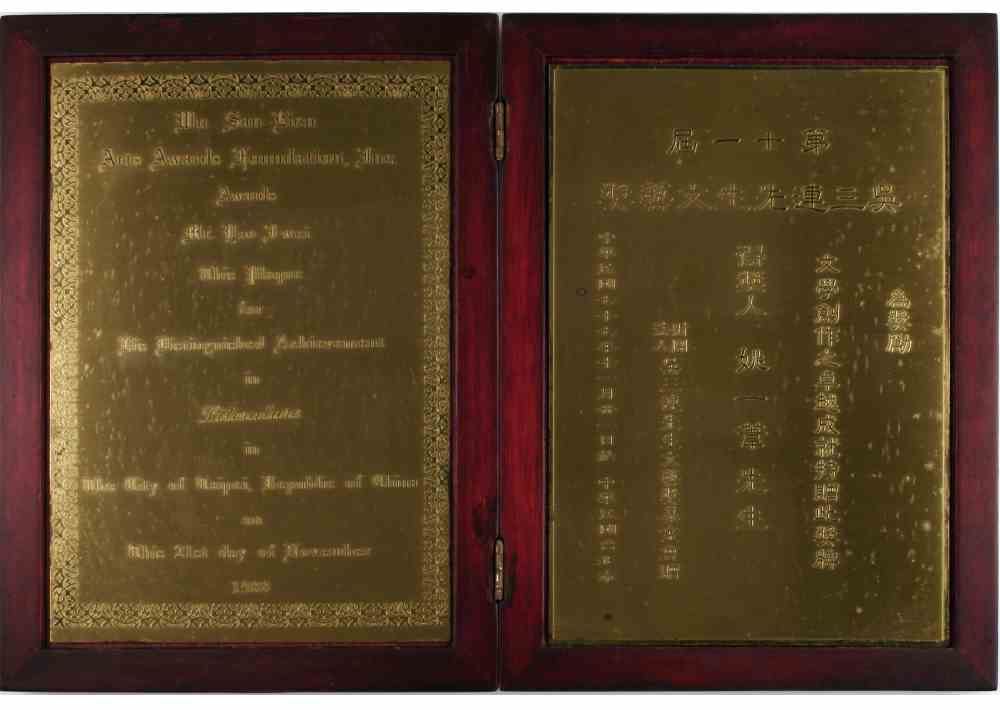 Wu San Lien
Arts Awards Foundation, Inc.
Awards
Mr. Yao I-wei
This Plaque
for
His Distinguished Achievement
in
Literature
in
The City of Taipei, Republic of China
on
This 21st day of November
1988
第十一屆
吳三連先生文藝獎
為獎勵
文學創作之卓越成就特贈此獎牌
得獎人 姚一葦先生
財團法人吳三連先生文藝獎基金會贈
中華民國七十七年十一月廿一日於 中華民國